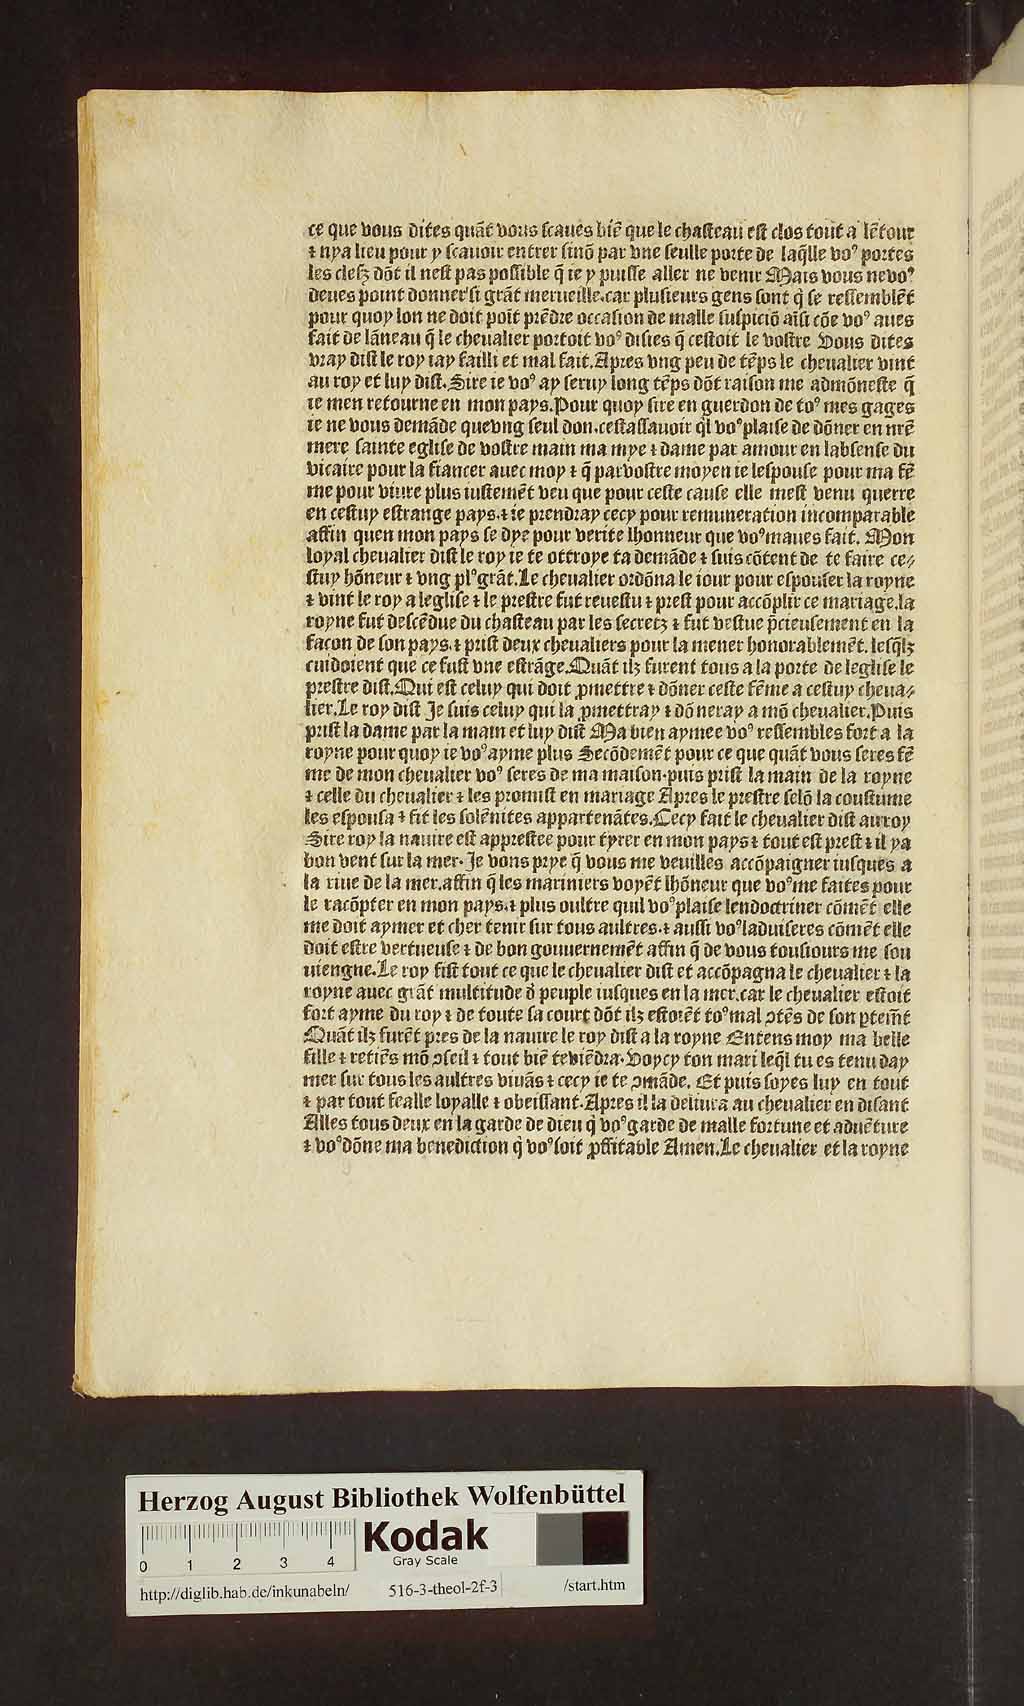 ce que vous dites quāt vous scaues biē que le chasteau est clos tout a lētour
⁊ nya lieu pour y scauoir entrer sinō par vne seulle porte de laq̄lle voꝰ portes
les clefz dōt il nest pas possible q̄ ie y puisse aller ne venir Mais vous ne voꝰ
deues point donner si grāt merueille.car plusieurs gens sont q̇ se ressemblēt
pour quoy lon ne doit poīt prēdre occasion de malle suspiciō aīsi cōe voꝰ aues
fait de lāneau q̄ le cheualier portoit voꝰ disies q̄ cestoit le vostre Vous dites
vray dist le roy iay failli et mal fait.Apres vng peu de tēps le cheualier vint
au roy et luy dist.Sire ie voꝰ ay seruy long tēps dōt raison me admōneste q̄
ie men retourne en mon pays.Pour quoy sire en guerdon de toꝰ mes gages
ie ne vous demāde quevng seul don.cestassauoir q̇l voꝰ plaise de dōner en nrē
mere sainte eglise de vostre main ma mye ⁊ dame par amour en labsense du
vicaire pour la fiancer auec moy ⁊ q̄ par vostre moyen ie lespouse pour ma fē
me pour viure plus iustemēt veu que pour ceste cause elle mest venu querre
en cestuy estrange pays.⁊ ie prendray cecy pour remuneration incomparable
affin quen mon pays se dye pour verite lhonneur que voꝰ maues fait. Mon
loyal cheualier dist le roy ie te ottroye ta demāde ⁊ suis cōtent de te faire ce⸗
stuy hōneur ⁊ vng plꝰ grāt.Le cheualier ordōna le iour pour espouser la royne
⁊ vint le roy a leglise ⁊ le prestre fut reuestu ⁊ prest pour accōplir ce mariage.la
royne fut descēdue du chasteau par les secretz ⁊ fut vestue p̄cieusement en la
facon de son pays.⁊ prist deux cheualiers pour la mener honorablemēt. lesq̄lz
cuidoient que ce fust vne estrāge.Quāt ilz furent tous a la porte de leglise le
prestre dist.Qui est celuy qui doit ꝓmettre ⁊ dōner ceste fēme a cestuy cheua⸗
lier.Le roy dist Je suis celuy qui la ꝓmettray ⁊ dōneray a mō cheualier.Puis
prist la dame par la main et luy dist Ma bien aymee voꝰ ressembles fort a la
royne pour quoy ie voꝰ ayme plus Secōdemēt pour ce que quāt vous seres fē
me de mon cheualier voꝰ seres de ma maison.puis prist la main de la royne
⁊ celle du cheualier ⁊ les promist en mariage Apres le prestre selō la coustume
les espousa ⁊ fit les solēnites appartenātes.Cecy fait le cheualier dist au roy
Sire roy la nauire est apprestee pour tyrer en mon pays ⁊ tout est prest ⁊ il ya
bon vent sur la mer. Je vons prye q̄ vous me veuilles accōpaigner iusques a
la riue de la mer.affin q̄ les mariniers voyēt lhōneur que voꝰ me faites pour
le racōpter en mon pays.⁊ plus oultre quil voꝰ plaise lendoctriner cōmēt elle
me doit aymer et cher tenir sur tous aultres.⁊ aussi voꝰ laduiseres cōmēt elle
doit estre vertueuse ⁊ de bon gouuernemēt affin q̄ de vous tousiours me sou
uiengne.Le roy fist tout ce que le cheualier dist et accōpagna le cheualier ⁊ la
royne auec grāt multitude d̄ peuple iusques en la mer.car le cheualier estoit
fort ayme du roy ⁊ de toute sa court dōt ilz estoiēt toꝰ mal ꝯtēs de son ꝑtem̄t
Quāt ilz furēt pres de la nauire le roy dist a la royne Entens moy ma belle
fille ⁊ retiēs mō ꝯseil ⁊ tout biē te viēdra. Voycy ton mari leq̄l tu es tenu day
mer sur tous les aultres viuās ⁊ cecy ie te ꝯmāde. Et puis soyes luy en tout
⁊ par tout fealle loyalle ⁊ obeissant.Apres il la deliura au cheualier en disant
Alles tous deux en la garde de dieu q̇ voꝰ garde de malle fortune et aduēture
⁊ voꝰ dōne ma benediction q̇ voꝰ soit ꝓffitable Amen.Le cheualier et la royne
Herzog August Bibliothek Wolfenbüttel
Kodak
Gray Scale
0 1 2 3 4
http://diglib.hab.de/inkunabeln/ 516-3-theol-2f-3 /start.htm